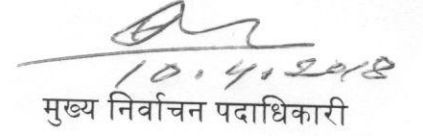 10.4.2018
मुख्य निर्वाचन पदाधिकारी